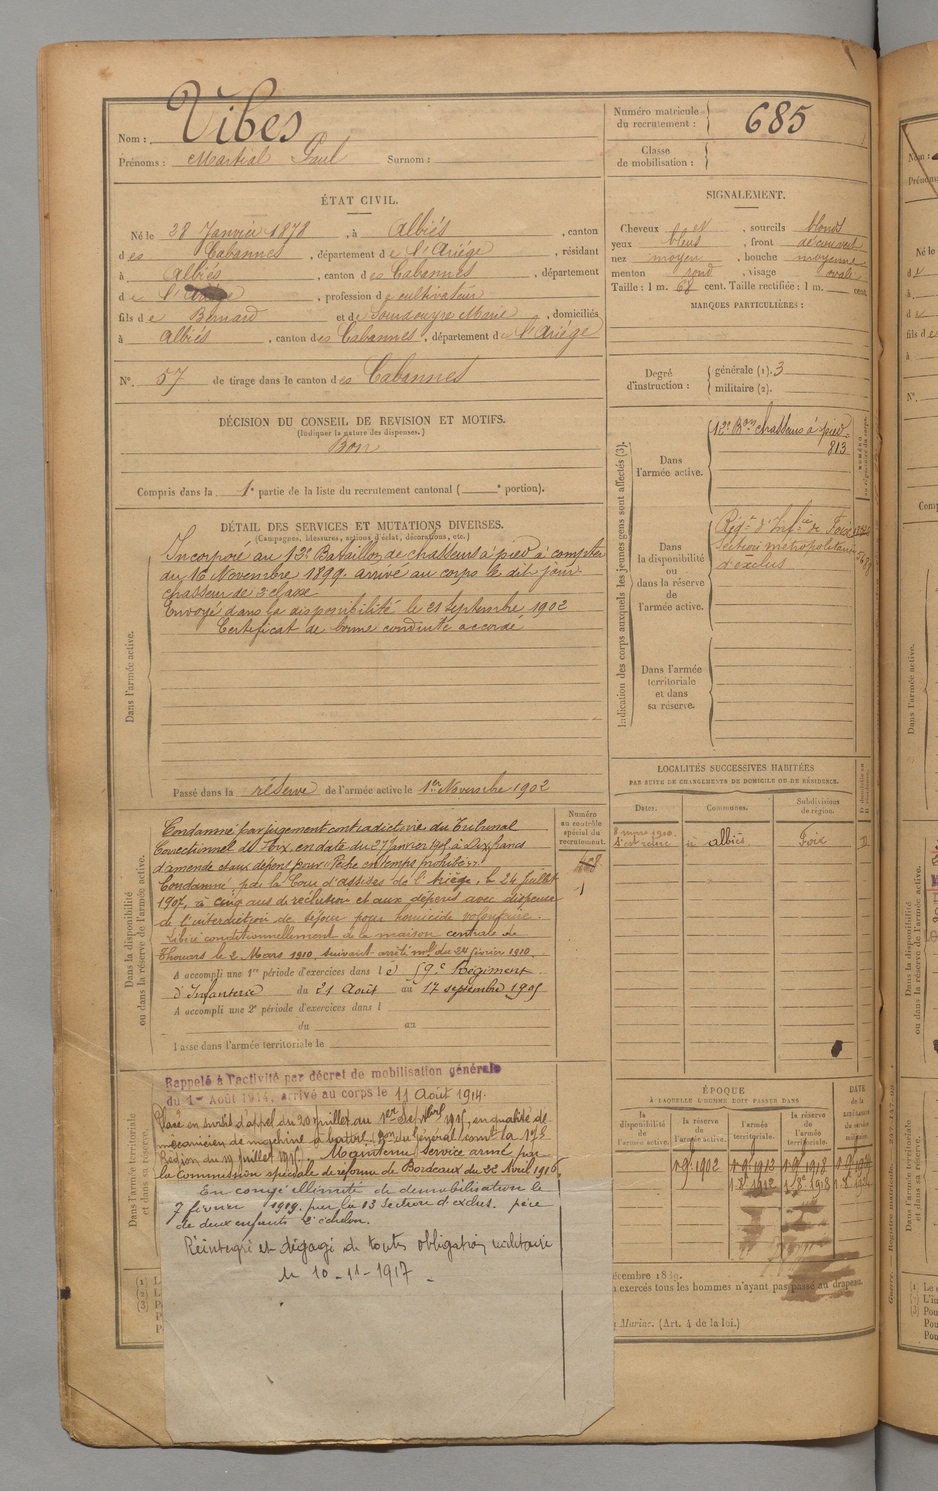 Nom : Vibes
Prénoms : Martial Paul Surnom :
Numéro matricule du recrutement : 685
Classe de mobilisation :
ÉTAT CIVIL.
Né le 28 Janvier 1878, à Albiés, canton
des Cabannes, département de l'Ariège, résidant
à Albiés, canton des Cabannes, département
de l'Ariège, profession de cultivateur
fils de Bernard et de Marie, domiciliés
à Albiés, canton des Cabannes, département de l'Ariége
N° 57 de tirage dans le canton des Cabannes
SIGNALEMENT.
Cheveux N, sourcils blonds
yeux bleus, front découvert
nez moyen, bouche moyenne
menton rond, visage ovale
Taille : 1 m. 68 cent. Taille rectifiée : 1 m. cent.
MARQUES PARTICULIÈRES :
Degré d'instruction : générale (1). 3
militaire (2).
DÉCISION DU CONSEIL DE REVISION ET MOTIFS.
(Indiquer la nature des dispenses.)
Bon
Compris dans la 1e partie de la liste du recrutement cantonal ( e portion).
DÉTAIL DES SERVICES ET MUTATIONS DIVERSES.
(Campagnes, blessures, actions d'éclat, décorations, etc.)
Dans l'armée active.
Incorporé au 12e Bataillon de chasseurs à pied à compter
du 16 Novembre 1899. arrivé au corps le dit jour
chasseur de 2e classe
Envoyé dans la disponibilité le 21 septembre 1902
Certificat de bonne conduite accordé
Passé dans la réserve de l'armée active le 1er Novembre 1902
Indication des corps auxquels les jeunes gens sont affectés (3).
Dans l'armée active.
12e Bon chasseurs à pied
813
Dans la disponibilité ou dans la réserve de l'armée active.
Régt d'Infie de Foix
Section métropolitaine
d'exclus
Dans l'armée territoriale et dans sa réserve.
LOCALITÉS SUCCESSIVES HABITÉES
PAR SUITE DE CHANGEMENTS DE DOMICILE OU DE RÉSIDENCE.
Dates. Communes. Subdivisions de région.
8 mars 1910. albiés Foix
Dans la disponibilité ou dans la réserve de l'armée active.
Numéro au contrôle spécial du recrutement.
Condamné par jugement contradictoire du Tribunal
Correctionnel de Foix en date du 27 Janvier 1905 à Dix francs
d'amende et aux dépens pour "Pêche en temps prohibé".
Condamné p. de la Cour d'assises de l'Ariége, le 24 Juillet
1907, à cinq ans de réclusion et aux dépens avec dispense
de l'interdiction de séjour pour homicide volontaire.
Libéré conditionnellement de la maison centrale de
Thouars le 2 Mars 1910, suivant arrêté ml du 24 février 1910.
A accompli une 1re période d'exercices dans le 59e Régiment
d'Infanterie du 21 Août au 17 septembre 1905
A accompli une 2e période d'exercices dans l
du au
Passé dans l'armée territoriale le
Dans l'armée territoriale et dans sa réserve.
Rappelé à l'activité par décret de mobilisation générale
du 1er Août 1914, arrivé au corps le 11 Août 1914.
Placé en sursis d'appel du 20 juillet au 1er Septbre 1915, en qualité de
mécanicien de machine à battre. Don du Général commt la 17e
Région du 19 juillet 1915. Maintenu service armé par
la Commission spéciale de réforme de Bordeaux du 22 Avril 1916.
En congé illimité de démobilisation le
7 février 1919. par la 13 Section d'exclus. père
de deux enfants 2e échelon.
Réintégré et dégagé de toutes obligations militaires
le 10-11-1917
ÉPOQUE
À LAQUELLE L'HOMME DOIT PASSER DANS
la disponibilité de l'armée active. la réserve de l'armée active. l'armée territoriale. la réserve de l'armée territoriale. DATE DE LA LIBÉRATION DU SERVICE MILITAIRE
1r 9bre 1902 1r 9bre 1912 1r 9bre 1918
exercés tous les hommes n'ayant pas passé au drapeau.
Mariac. (Art. 4 de la loi.)